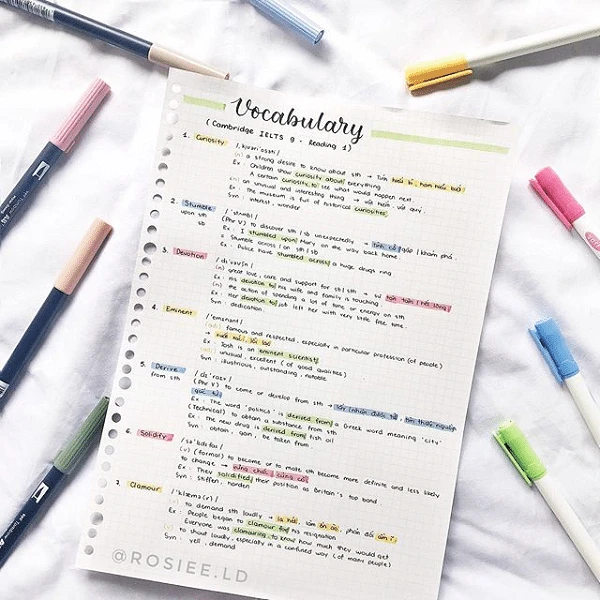 Vocabulary
(Cambridge IELTS 9 - Reading 1)
1. Curiosity
(n) a strong desire to know about sth → Tính hiếu kì, ham hiểu biết
Ex : Children show curiosity about everything
A certain curiosity to see what would happen next.
(n) an unusual and interesting thing →
Ex : The museum is full of historical curiosities.
Syn : interest, wonder
2. Stumble
upon sth
sb
(Phr V) to discover sth / sb unexpectedly → tình cờ gặp / khám phá
Ex : I stumbled upon Mary on the way back home.
Stumble across / on sth / sb
Ex : Police have stumbled across a huge drugs ring
3. Devotion
(n) great love, care and support for sb / sth → sự tận tâm / hết lòng
Ex : His devotion to his wife and family is touching.
(n) the action of spending a lot of time or energy on sth
Ex : Her devotion to job left her with very little free time.
Syn : dedication
4. Eminent
famous and respected, especially in particular profession (of people)
→ xuất sắc, lỗi lạc
Ex : Josh is an eminent scientist
unusual, excellent (of good qualities)
Syn : illustrious, outstanding, notable
5. Derive
from sth
(Phr V) to come or develop from sth →
Ex : The word 'politics' is derived from a Greek word meaning 'city'
(Technical) to obtain a substance from sth
Ex : The new drug is derived from fish oil
Syn : obtain, gain, be taken from
6. Solidify
(v) (formal) to become or to make sth become more definite and less likely
to change → vững chắc, củng cố
Ex : They solidified their position as Britain's top band
Syn : Stiffen, harden
7. Clamour
to demand sth loudly → la hét, làm ồn ào, phản đối ầm ĩ
Ex : People began to clamour for his resignation
Everyone was clamouring to know how much they would get
to shout loudly, especially in a confused way (of many people)
Syn : yell, demand
@ROSIEE.LD